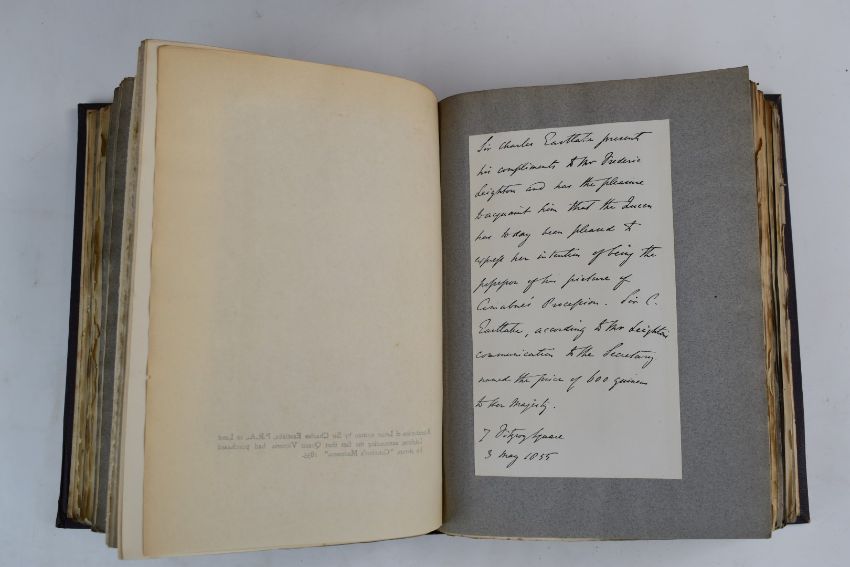 Facsimile of Letter written by Sir Charles Eastlake, P.R.A., to Lord
Leighton, announcing the fact that Queen Victoria had purchased
his picture, "Cimabue's Madonna." 1855.
Sir Charles Eastlake presents
his compliments to Mr Frederic
Leighton and has the pleasure
to acquaint him that the Queen
has to day been pleased to
express her intention of being the
possessor of his picture of
Cimabue's Procession. Sir C.
Eastlake, according to Mr Leighton's
communication to the Secretary
named the price of 600 guineas
to Her Majesty.
7 Fitzroy Square
3 May 1855